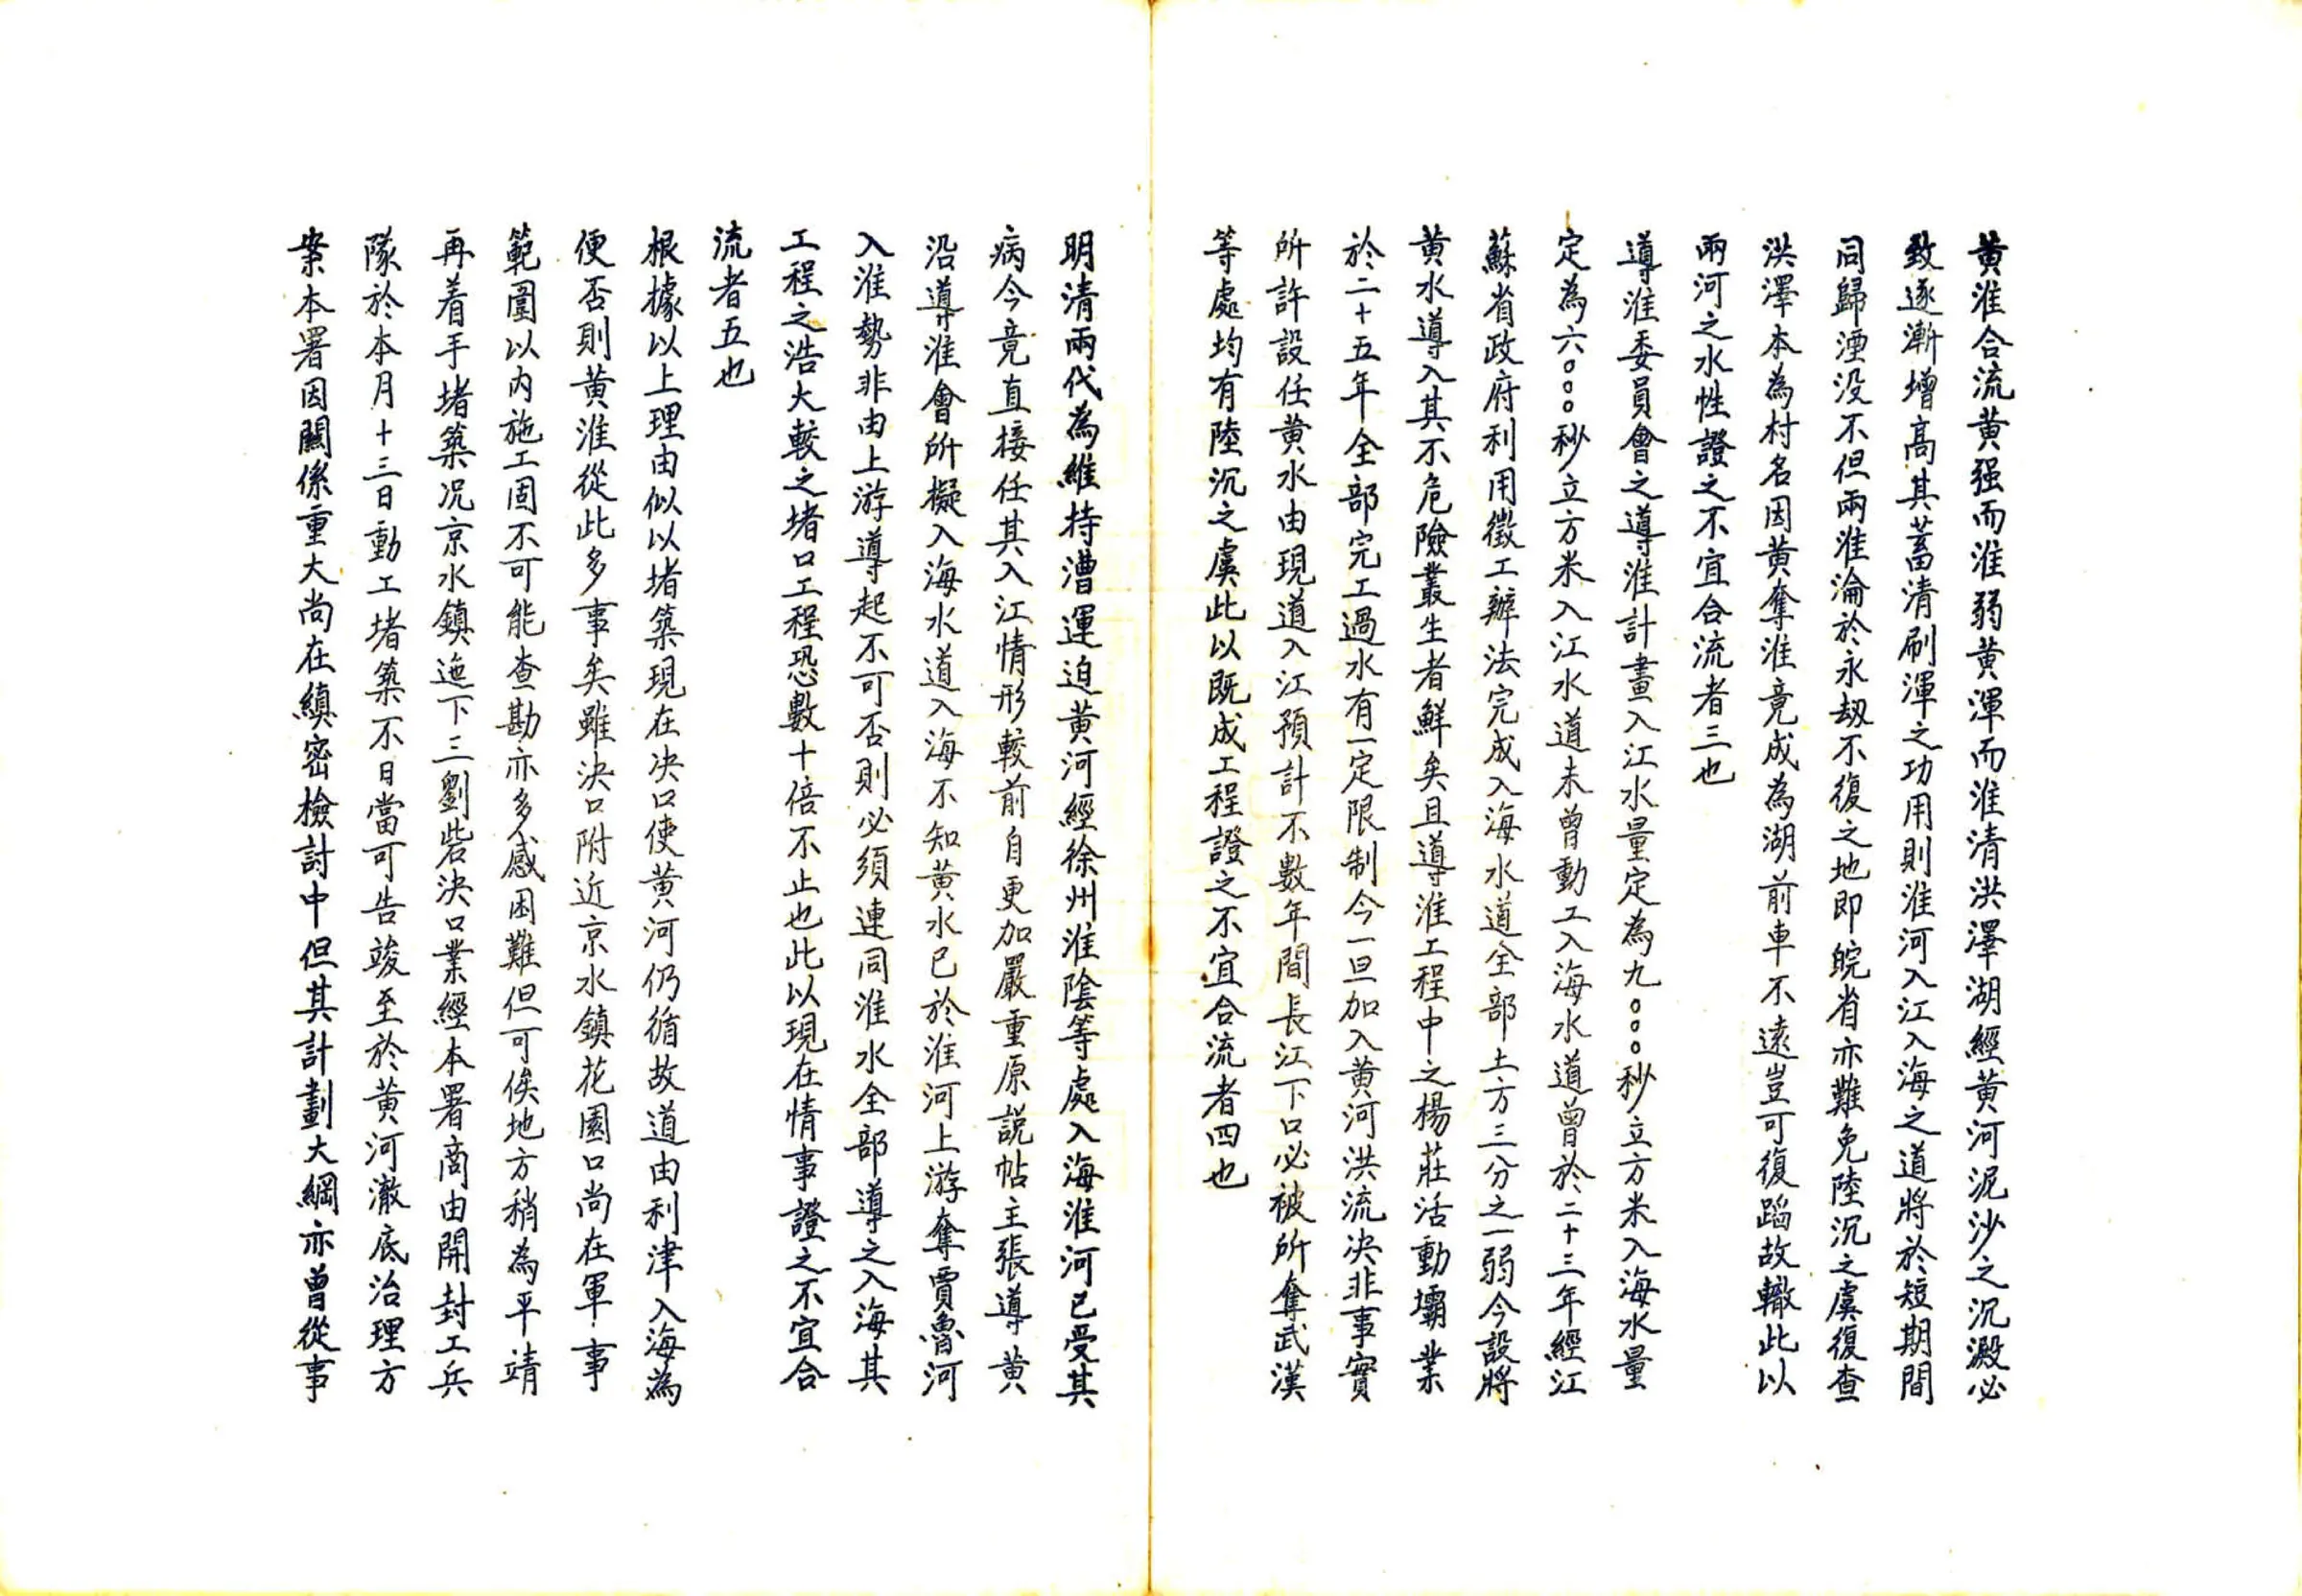 黄淮合流黄强而淮弱黄渾而淮清洪澤湖經黄河泥沙之沉澱必
致逐漸增高其蓄清刷渾之功用則淮河入江入海之道將於短期間
同歸湮没不但兩淮淪於永刼不復之地即皖省亦難免陸沉之虞復查
洪澤本為村名因黄奪淮竟成為湖前車不遠豈可復蹈故轍此以
兩河之水性證之不宜合流者三也
導淮委員會之導淮計畫入江水量定為九○○○秒立方米入海水量
定為六○○○秒立方米入江水道未曾動工入海水道曾於二十三年經江
蘇省政府利用徵工辦法完成入海水道全部土方三分之一弱今設將
黄水導入其不危險叢生者鮮矣且導淮工程中之楊莊活動壩業
於二十五年全部完工過水有一定限制今一旦加入黄河洪流决非事實
所許設任黄水由現道入江預計不數年間長江下口必被所奪武漢
等處均有陸沉之虞此以既成工程證之不宜合流者四也
明清兩代為維持漕運迫黄河經徐州淮陰等處入海淮河已受其
病今竟直接任其入江情形較前自更加嚴重原説帖主張導黄
沿導淮會所擬入海水道入海不知黄水已於淮河上游奪賈魯河
入淮勢非由上游導起不可否則必須連同淮水全部導之入海其
工程之浩大較之堵口工程恐數十倍不止也此以現在情事證之不宜合
流者五也
根據以上理由似以堵築現在决口使黄河仍循故道由利津入海為
便否則黄淮從此多事矣雖决口附近京水鎮花園口尚在軍事
範圍以内施工固不可能查勘亦多感困難但可俟地方稍為平靖
再着手堵築况京水鎮迤下三劉砦决口業經本署商由開封工兵
隊於本月十三日動工堵築不日當可告竣至於黄河澈底治理方
案本署因關係重大尚在縝密檢討中但其計劃大綱亦曾從事